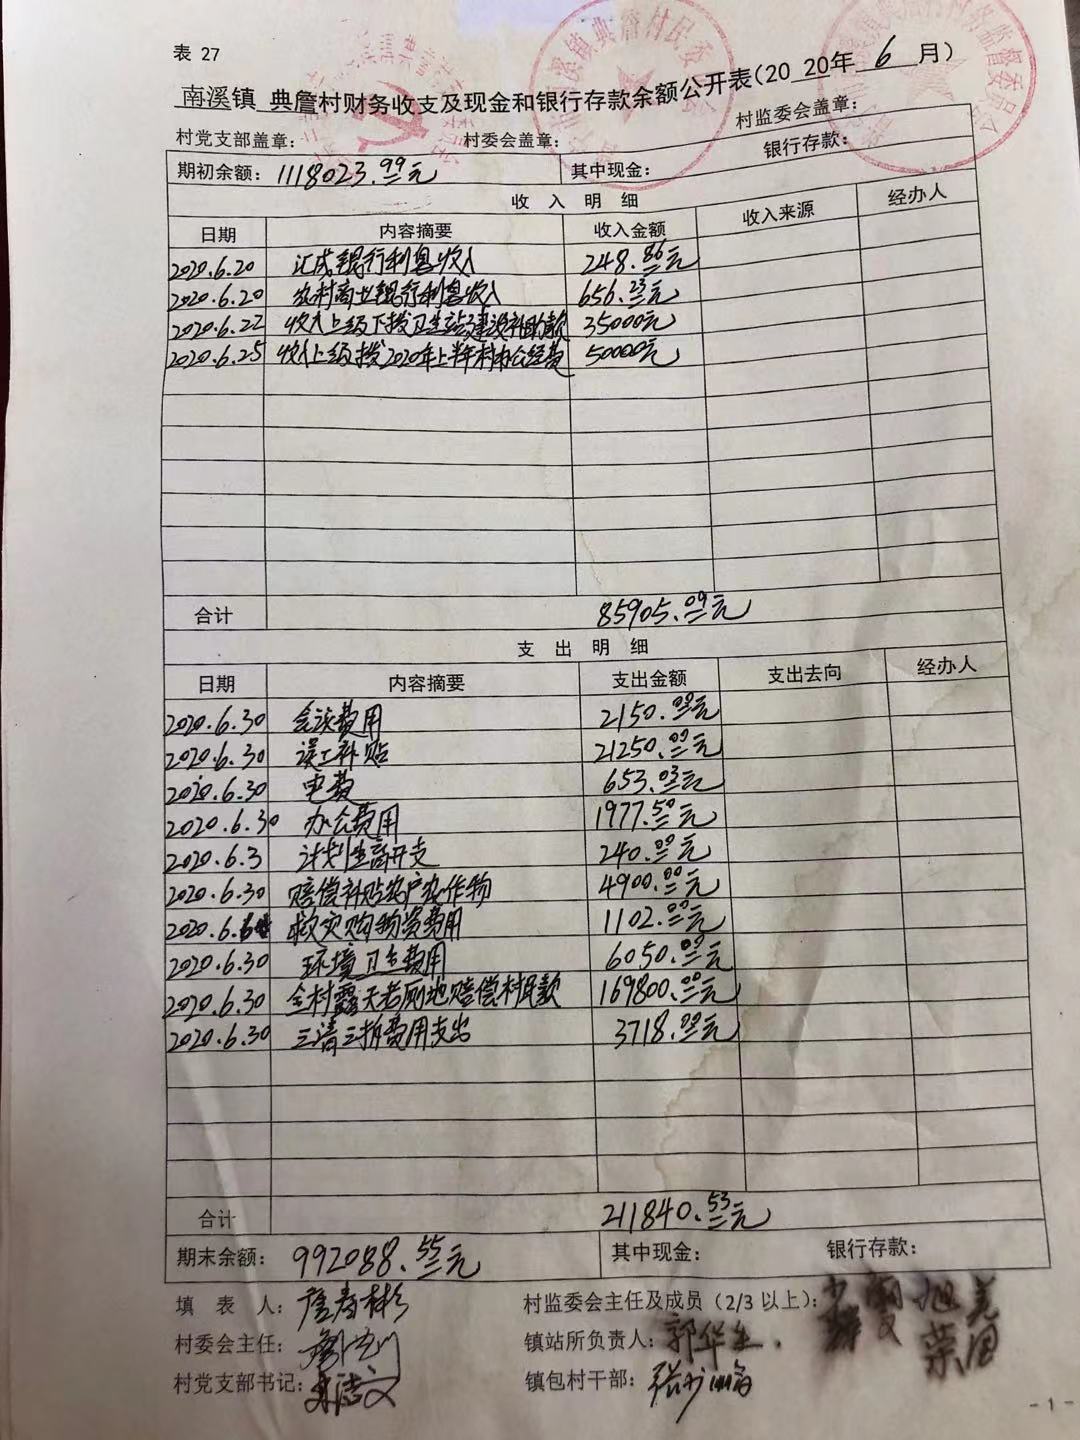 表 27
南溪镇 典詹村财务收支及现金和银行存款余额公开表(2020年 6 月)
村党支部盖章: 村委会盖章: 村监委会盖章:
期初余额: 1118023.99元 其中现金: 银行存款:
收 入 明 细
日期 内容摘要 收入金额 收入来源 经办人
2020.6.20 汇成银行利息收入 248.86元
2020.6.20 农村商业银行利息收入 656.23元
2020.6.22 收入上级下拨卫生站建设补助款 35000元
2020.6.25 收入上级拨2020年上半年村办公经费 50000元
合计 85905.09元
支 出 明 细
日期 内容摘要 支出金额 支出去向 经办人
2020.6.30 会议费用 2150.00元
2020.6.30 误工补贴 21250.00元
2020.6.30 电费 653.03元
2020.6.30 办公费用 1977.50元
2020.6.3 计划生育开支 240.00元
2020.6.30 赔偿补贴农户农作物 4900.00元
2020.6. 救灾购物资费用 1102.00元
2020.6.30 环境卫生费用 6050.00元
2020.6.30 全村露天老厕地赔偿村民款 169800.00元
2020.6.30 三清三拆费用支出 3718.00元
合计 211840.53元
期末余额: 992088.55元 其中现金: 银行存款:
填 表 人: 村监委会主任及成员(2/3以上): 旭
村委会主任: 镇站所负责人: 郭华生
村党支部书记: 镇包村干部:
- 1 -